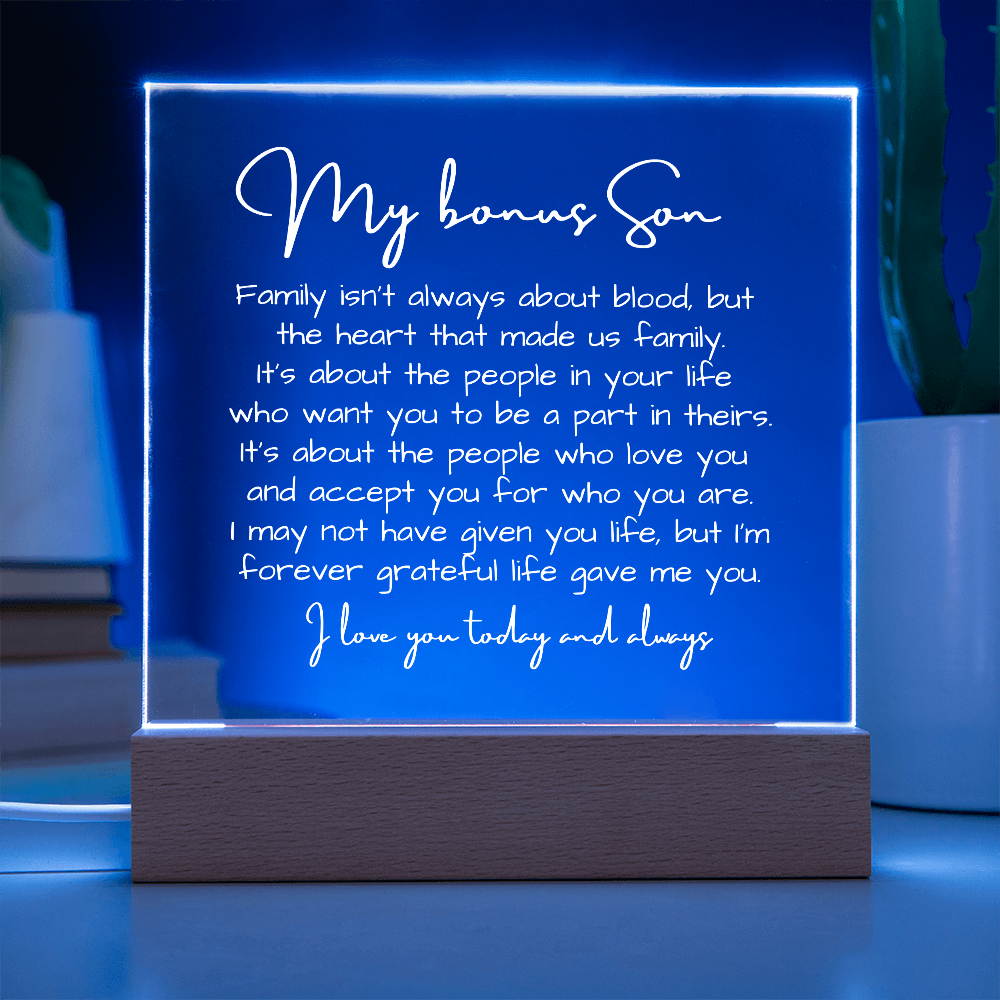 My bonus Son
Family isn't always about blood, but
the heart that made us family.
It's about the people in your life
who want you to be a part in theirs.
It's about the people who love you
and accept you for who you are.
I may not have given you life, but I'm
forever grateful life gave me you.
I love you today and always